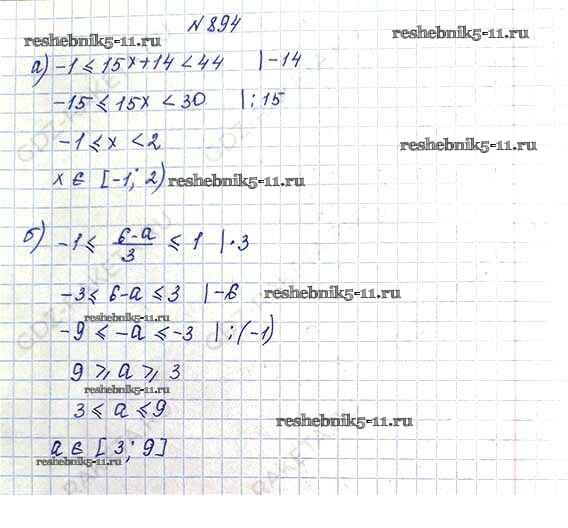 № 894
reshebnik5-11.ru reshebnik5-11.ru
а) -1 ≤ 15x+14 < 44 | -14
-15 ≤ 15x < 30 | : 15
-1 ≤ x < 2 reshebnik5-11.ru
x ∈ [-1; 2) reshebnik5-11.ru
б) -1 ≤ (6-a)/3 ≤ 1 | · 3
-3 ≤ 6-a ≤ 3 | -6 reshebnik5-11.ru
-9 ≤ -a ≤ -3 | : (-1)
9 ≥ a ≥ 3
reshebnik5-11.ru
3 ≤ a ≤ 9
reshebnik5-11.ru
a ∈ [3; 9]
reshebnik5-11.ru